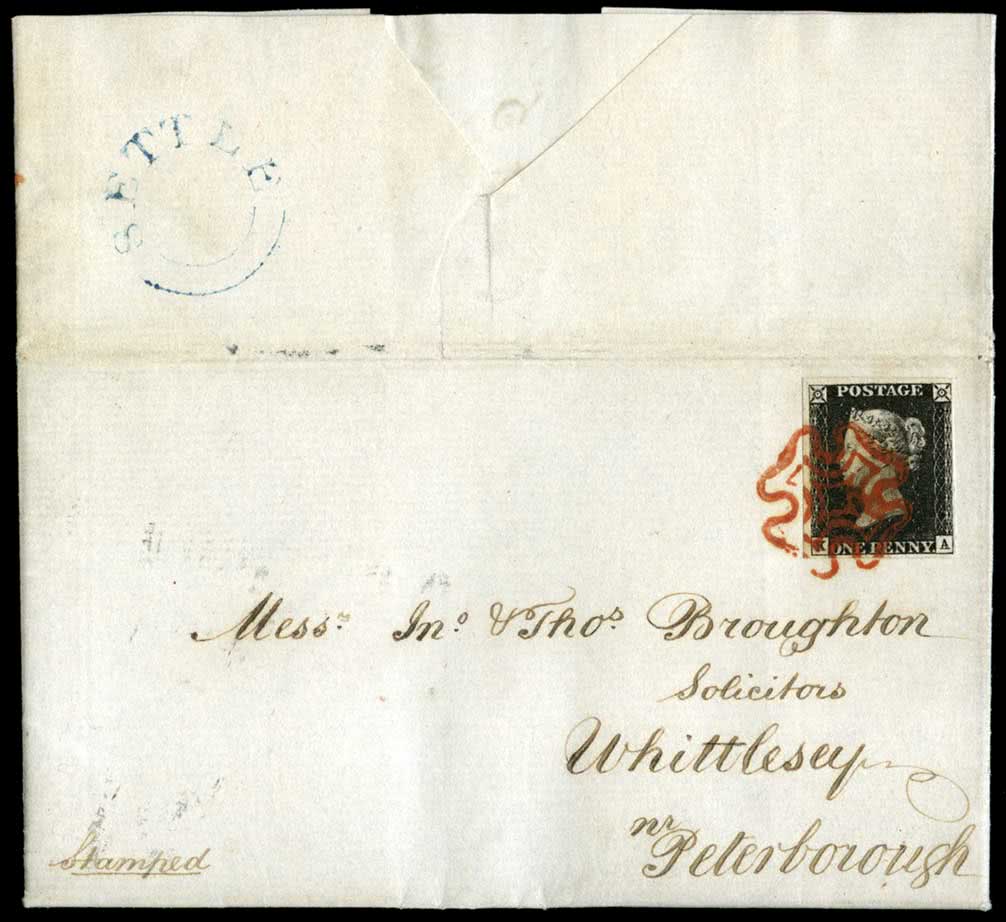 SETTLE
POSTAGE
K ONE PENNY A
Messrs Jno & Thos Broughton
Solicitors
Whittlesey
nr Peterborough
Stamped